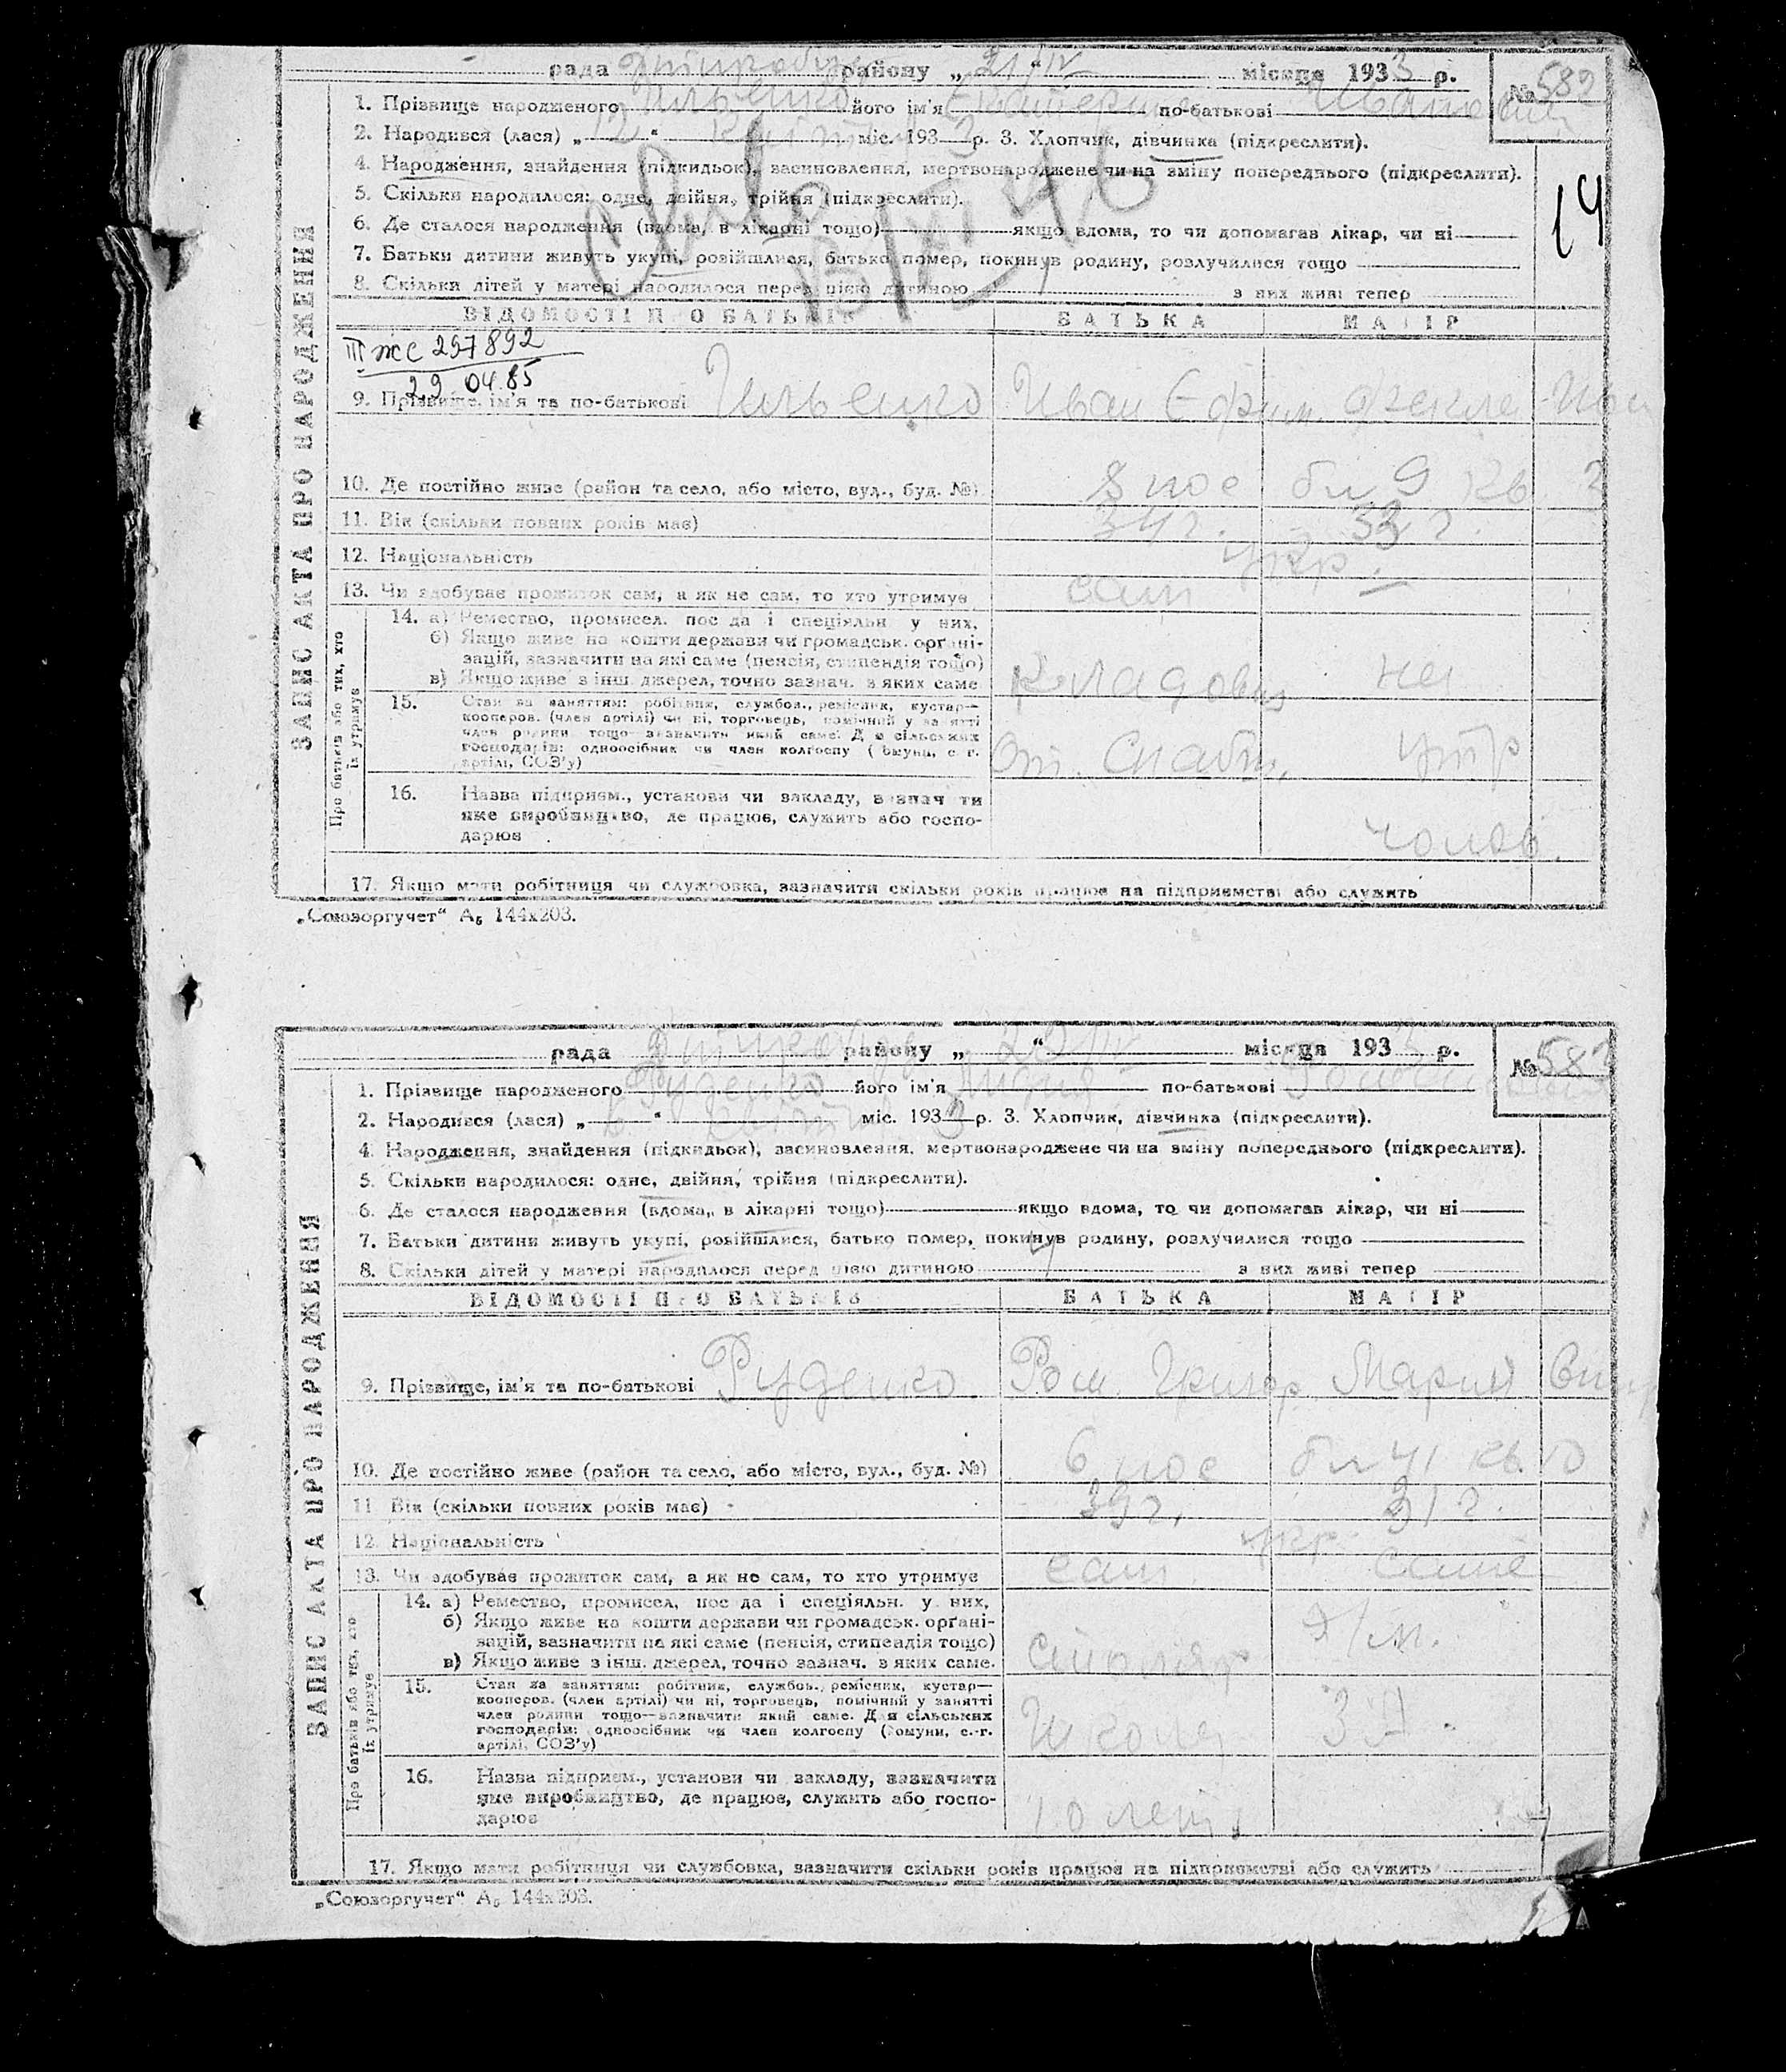 рада Дніпробуд району „ 21/IV “ місяця 1933 р.
№ 589
1. Прізвище народженого Ильенко його ім'я Екатерина по-батькові Ивановна
2. Народився (лася) „ 12 “ міс. 1933 р. 3. Хлопчик, дівчинка (підкреслити).
4. Народження, знайдення (підкидьок), васиновлення, мертвонароджене чи на зміну попереднього (підкреслити).
14
5. Скільки народилося: одне, двійня, трійня (підкреслити).
6. Де сталося народження (вдома, в лікарні тощо) якщо вдома, то чи допомагав лікар, чи ні
7. Батьки дитини живуть укупі, розійшлися, батько помер, покинув родину, розлучилися тощо
8. Скільки дітей у матері народилося перед цією дитиною з них живі тепер
ВІДОМОСТІ ПРО БАТЬКІВ БАТЬКА МАТІР
III ЖС 297892
29 04.85
9. Прізвище, ім'я та по-батькові Ильенко Иван Ефим. Фекла Ив
10. Де постійно живе (район та село, або місто, вул., буд. №) 8 пос бл 9 кв 2
11. Вік (скільки повних років має) 34 г. 33 г.
12. Національність укр.
13. Чи здобуває прожиток сам, а як не сам, то хто утримує сам
14. а) Ремество, промисел, посада і спеціяльн. у них.
б) Якщо живе на кошти держави чи громадськ. орґані-
зацій, зазначити на які саме (пенсія, стипендія тощо)
в) Якщо живе з інш. джерел, точно зазнач. з яких саме Кладовщ на
15. Стан за заняттям: робітник, службов., ремісник, кустар—
кооперов. (член артілі) чи ні, торговець, помічний у занятті
член родини тощо—зазначити який саме. Для сільських
господарів: одноосібник чи член колгоспу (комуни, с.-г.
артілі, СОЗ'у) От. Снабж. утр
16. Назва підприєм., установи чи закладу, зазначити
яке виробництво, де працює, служить або госпо-
дарює чолов.
17. Якщо мати робітниця чи службовка, зазначити скільки років працює на підприємстві або служить
„Союзоргучет“ А₅ 144х203.
ЗАПИС АКТА ПРО НАРОДЖЕННЯ
Про батьків або тих, хто
їх утримує
рада Дніпробуд району „ “ місяця 1933 р.
№ 583
1. Прізвище народженого Руденко його ім'я Лидия по-батькові
2. Народився (лася) „ 6 “ міс. 1933 р. 3. Хлопчик, дівчинка (підкреслити).
4. Народження, знайдення (підкидьок), васиновлення, мертвонароджене чи на зміну попереднього (підкреслити).
5. Скільки народилося: одне, двійня, трійня (підкреслити).
6. Де сталося народження (вдома, в лікарні тощо) якщо вдома, то чи допомагав лікар, чи ні
7. Батьки дитини живуть укупі, розійшлися, батько помер, покинув родину, розлучилися тощо
8. Скільки дітей у матері народилося перед цією дитиною з них живі тепер
ВІДОМОСТІ ПРО БАТЬКІВ БАТЬКА МАТІР
9. Прізвище, ім'я та по-батькові Руденко Ром Григор Мария
10. Де постійно живе (район та село, або місто, вул., буд. №) 6 пос бл 41 кв. 10
11. Вік (скільки повних років має) 39 г. 31 г.
12. Національність укр.
13. Чи здобуває прожиток сам, а як не сам, то хто утримує сам сама
14. а) Ремество, промисел, посада і спеціяльн. у них.
б) Якщо живе на кошти держави чи громадськ. орґані-
зацій, зазначити на які саме (пенсія, стипендія тощо)
в) Якщо живе з інш. джерел, точно зазнач. з яких саме. столяр
15. Стан за заняттям: робітник, службов., ремісник, кустар—
кооперов. (член артілі) чи ні, торговець, помічний у занятті
член родини тощо—зазначити який саме. Для сільських
господарів: одноосібник чи член колгоспу (комуни, с.-г.
артілі, СОЗ'у)
16. Назва підприєм., установи чи закладу, зазначити
яке виробництво, де працює, служить або госпо-
дарює 10 лет.
17. Якщо мати робітниця чи службовка, зазначити скільки років працює на підприємстві або служить
„Союзоргучет“ А₅ 144х203.
ЗАПИС АКТА ПРО НАРОДЖЕННЯ
Про батьків або тих, хто
їх утримує